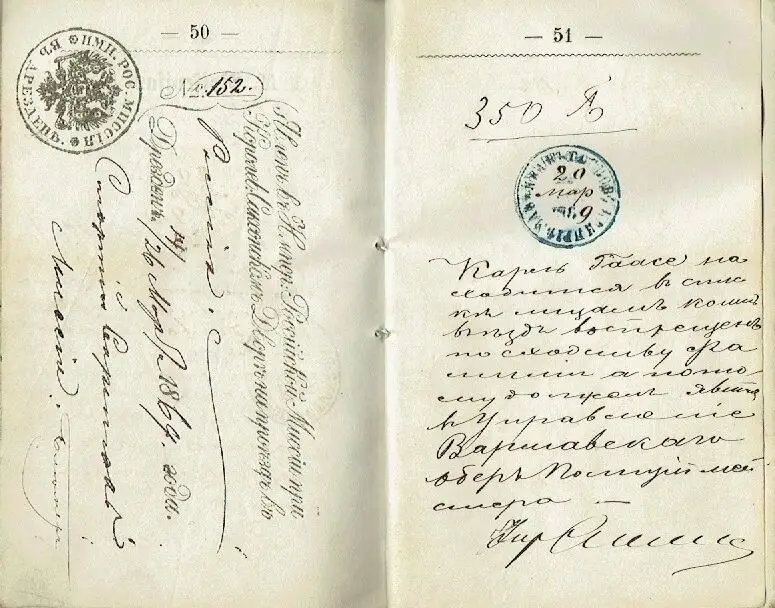 — 50 —
ИМП. РОС. МИССІЯ ✽ ВЪ ДРЕЗДЕНѢ. ✽
№ 152.
Явленъ въ Импер. Россійской Миссіи при
Королев. Саксонскомъ Дворѣ на проѣздъ въ
Россію.
Дрезденъ, 14/26 Марта 1869 года.
Старшій Секретарь
Миссіи
— 51 —
350
20
Мар
69
Карлъ Гаасе на
ходится въ спис
кѣ лицамъ коимъ
въѣздъ воспрещенъ
по сходству фа
миліи а пото
му долженъ явится
въ Управленіе
Варшавскаго
Оберъ Полицiймей
стера —